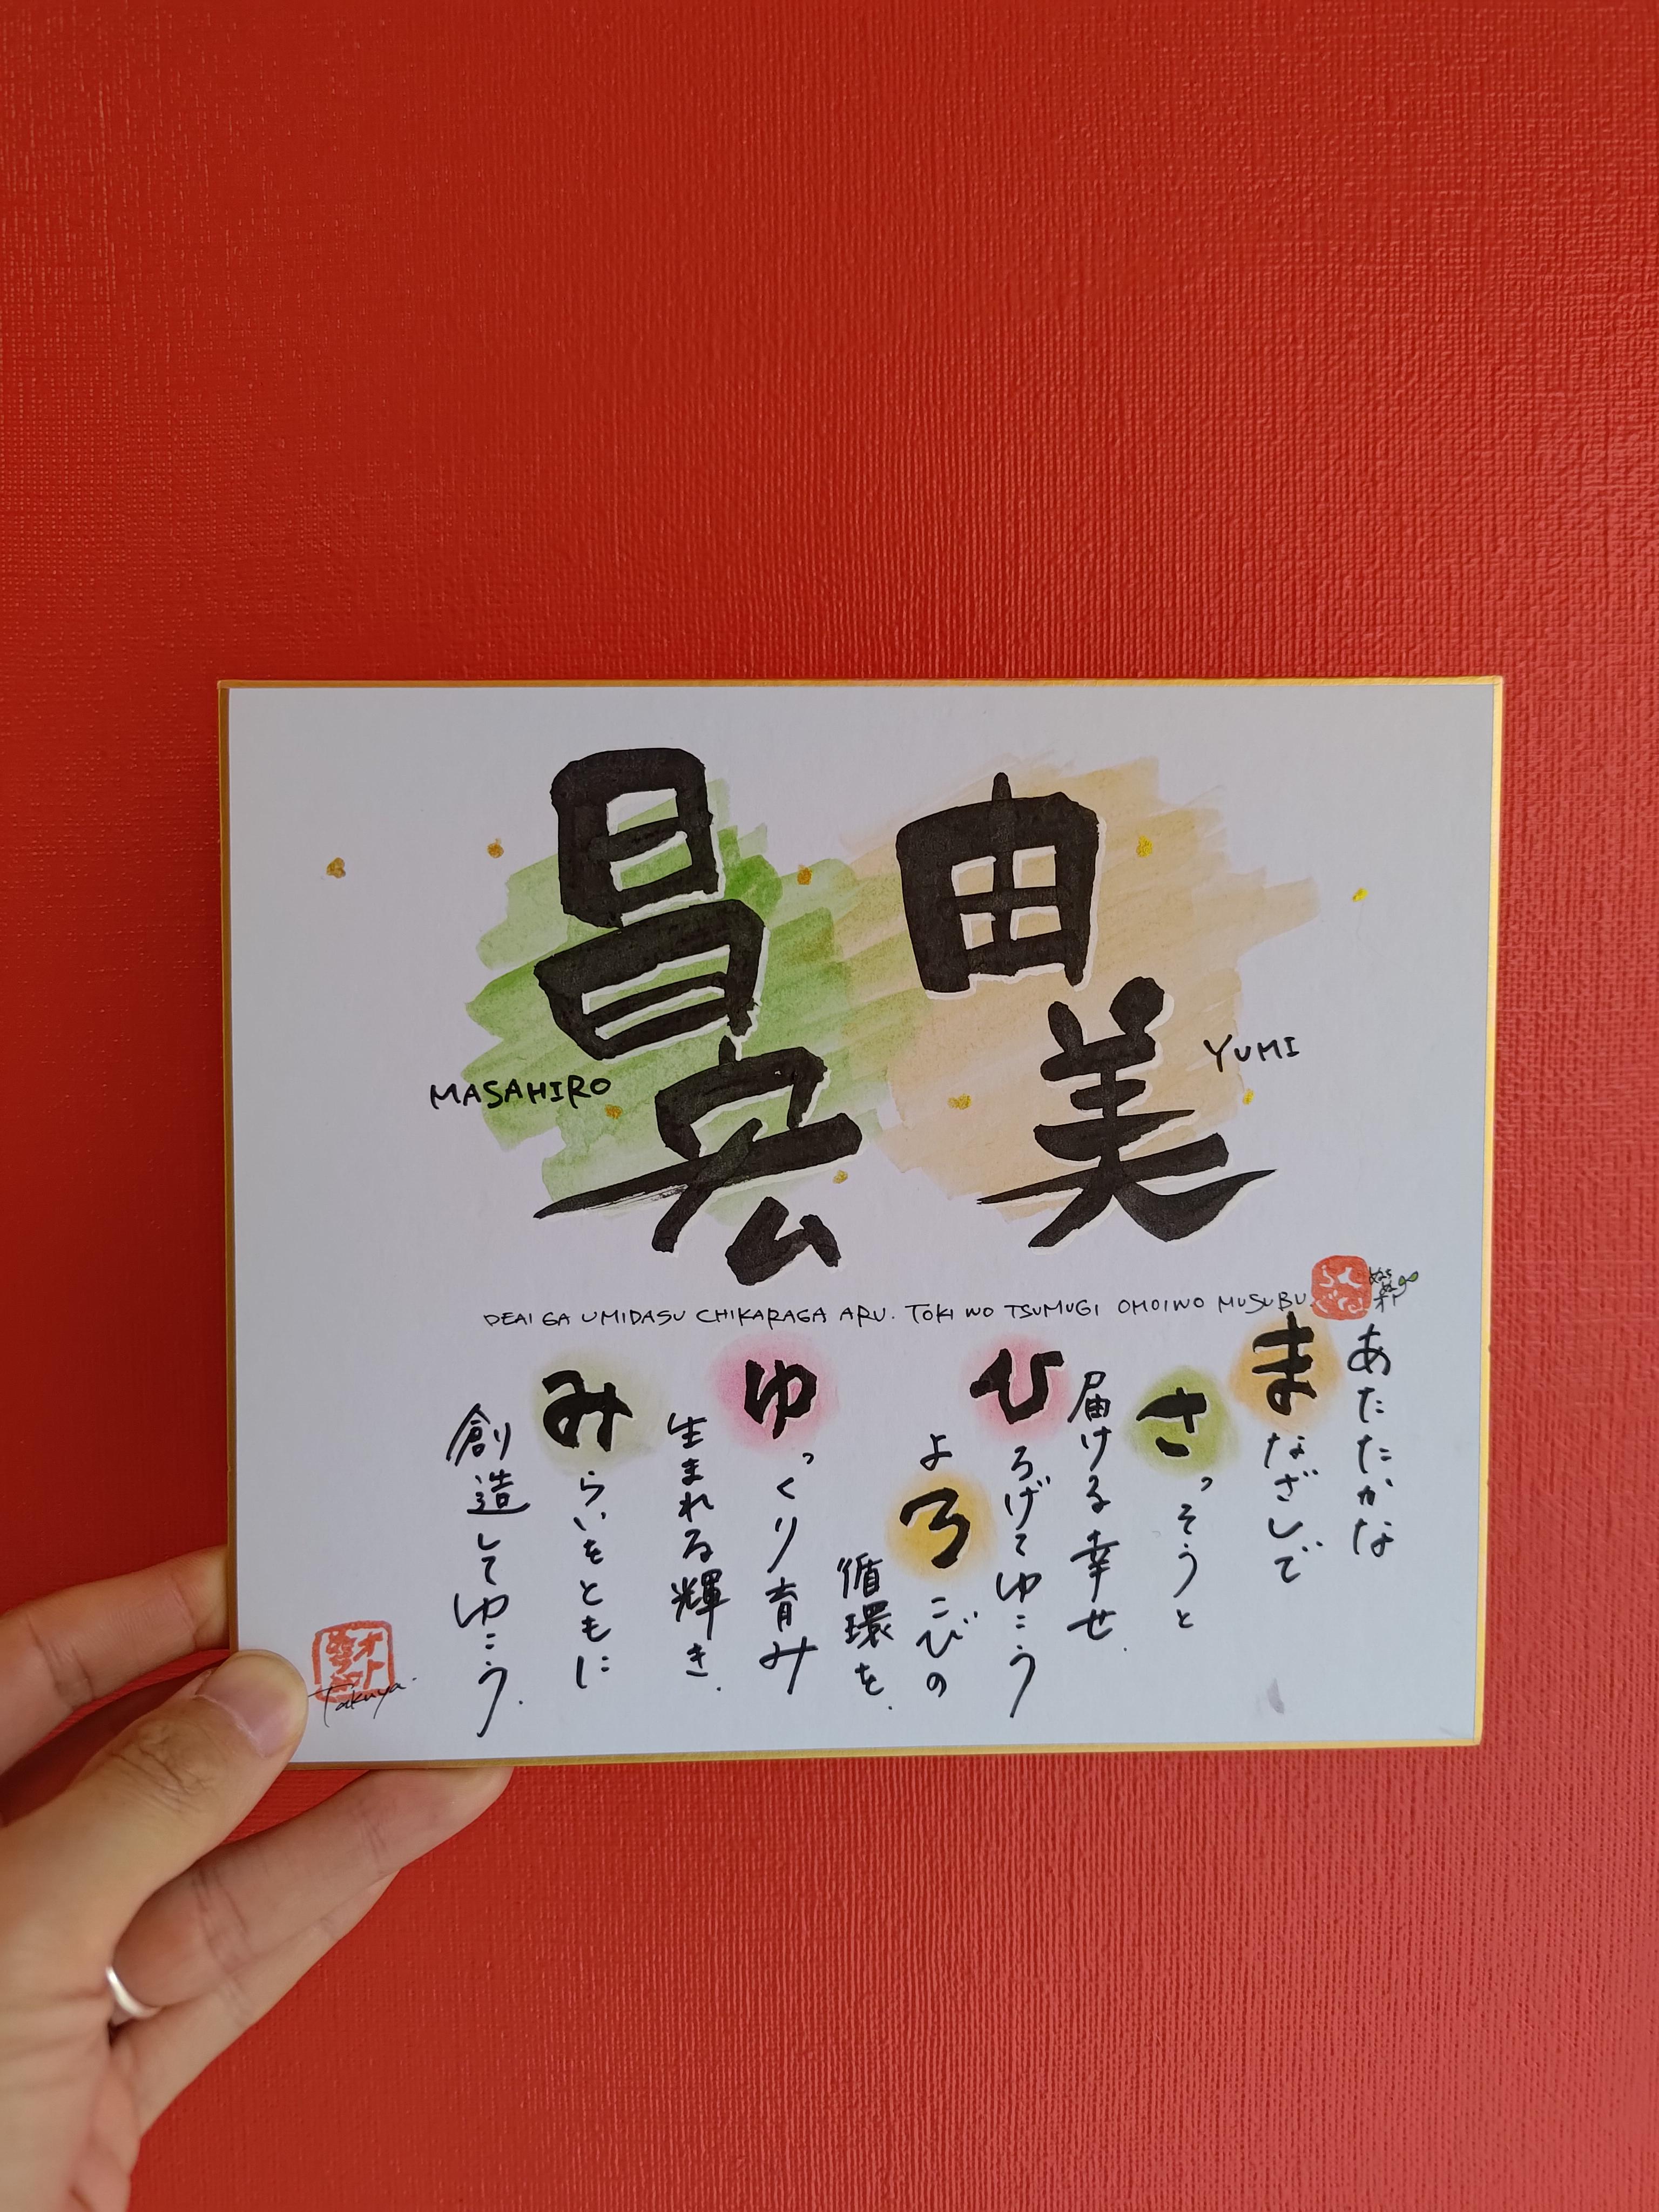 昌宏
由美
MASAHIRO
YUMI
DEAI GA UMIDASU CHIKARAGA ARU. TOKI WO TSUMUGI OMOIWO MUSUBU
あたたかな
まなざしで
さっそうと
届ける幸せ.
ひろげてゆこう
よろこびの
循環を.
ゆっくり育み
生まれる輝き.
みらいをともに
創造してゆこう.
Takuya.